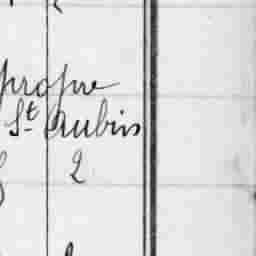 propre
St Aubin
2